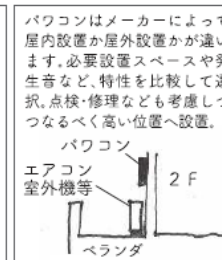 パワコンはメーカーによって
屋内設置か屋外設置かが違い
ます。必要設置スペースや発
生音など、特性を比較して選
択。点検・修理なども考慮しつ
つなるべく高い位置へ設置。
パワコン
エアコン
室外機等
2F
ベランダ